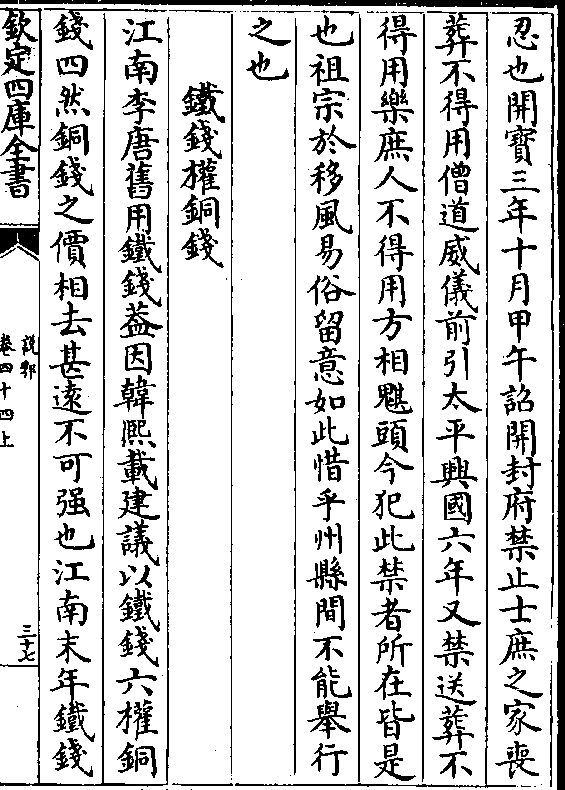 忍也開寳三年十月甲午詔開封府禁止士庶之家喪
葬不得用僧道威儀前引太平興國六年又禁送葬不
得用樂庶人不得用方相魌頭今犯此禁者所在皆是
也祖宗於移風易俗留意如此惜乎州縣間不能舉行
之也
鐵錢權銅錢
江南李唐舊用鐵錢葢因韓熙載建議以鐵錢六權銅
錢四然銅錢之價相去甚逺不可强也江南末年鐵錢
欽定四庫全書
說郛
卷四十四上
三十七